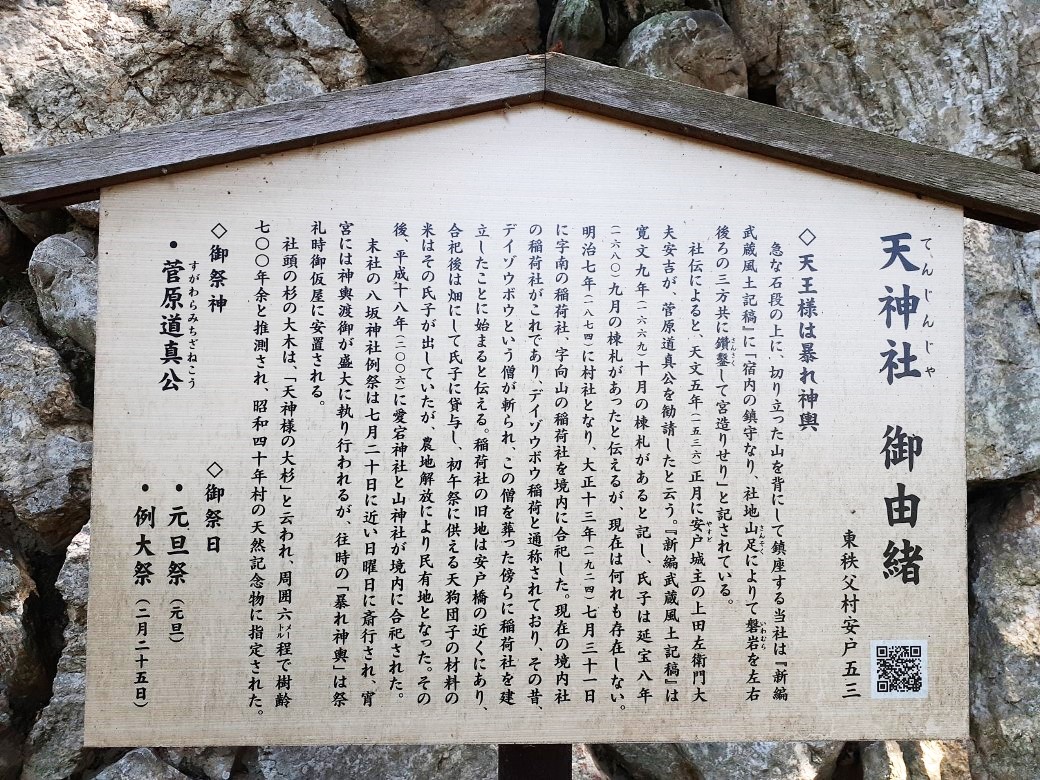 天神社 御由緒
てんじんじや
東秩父村安戸五三
◇天王様は暴れ神輿
急な石段の上に、切り立った山を背にして鎮座する当社は『新編
武蔵風土記稿』に「宿内の鎮守なり、社地山足によりて磐岩を左右
さんそく
いわむら
後ろの三方共に鑽鑿して宮造りせり」と記されている。
さんさく
社伝によると、天文五年(一五三六)正月に安戸城主の上田左衛門大
やすど
夫安吉が、菅原道真公を勧請したと云う。『新編武蔵風土記稿』は
寛文九年(一六六九)十月の棟札があると記し、氏子は延宝八年
(一六八〇)九月の棟札があったと伝えるが、現在は何れも存在しない。
明治七年(一八七四)に村社となり、大正十三年(一九二四)七月三十一日
に字南の稲荷社、字向山の稲荷社を境内に合祀した。現在の境内社
の稲荷社がこれであり、デイゾウボウ稲荷と通称されており、その昔、
デイゾウボウという僧が斬られ、この僧を葬った傍らに稲荷社を建
立したことに始まると伝える。稲荷社の旧地は安戸橋の近くにあり、
合祀後は畑にして氏子に貸与し、初午祭に供える天狗団子の材料の
米はその氏子が出していたが、農地解放により民有地となった。その
後、平成十八年(二〇〇六)に愛宕神社と山神社が境内に合祀された。
末社の八坂神社例祭は七月二十日に近い日曜日に斎行され、宵
宮には神輿渡御が盛大に執り行われるが、往時の「暴れ神輿」は祭
礼時御仮屋に安置される。
社頭の杉の大木は、「天神様の大杉」と云われ、周囲六㍍程で樹齢
七〇〇年余と推測され、昭和四十年村の天然記念物に指定された。
◇御祭神
•菅原道真公
すがわらみちざねこう
◇御祭日
•元旦祭(元旦)
•例大祭(二月二十五日)